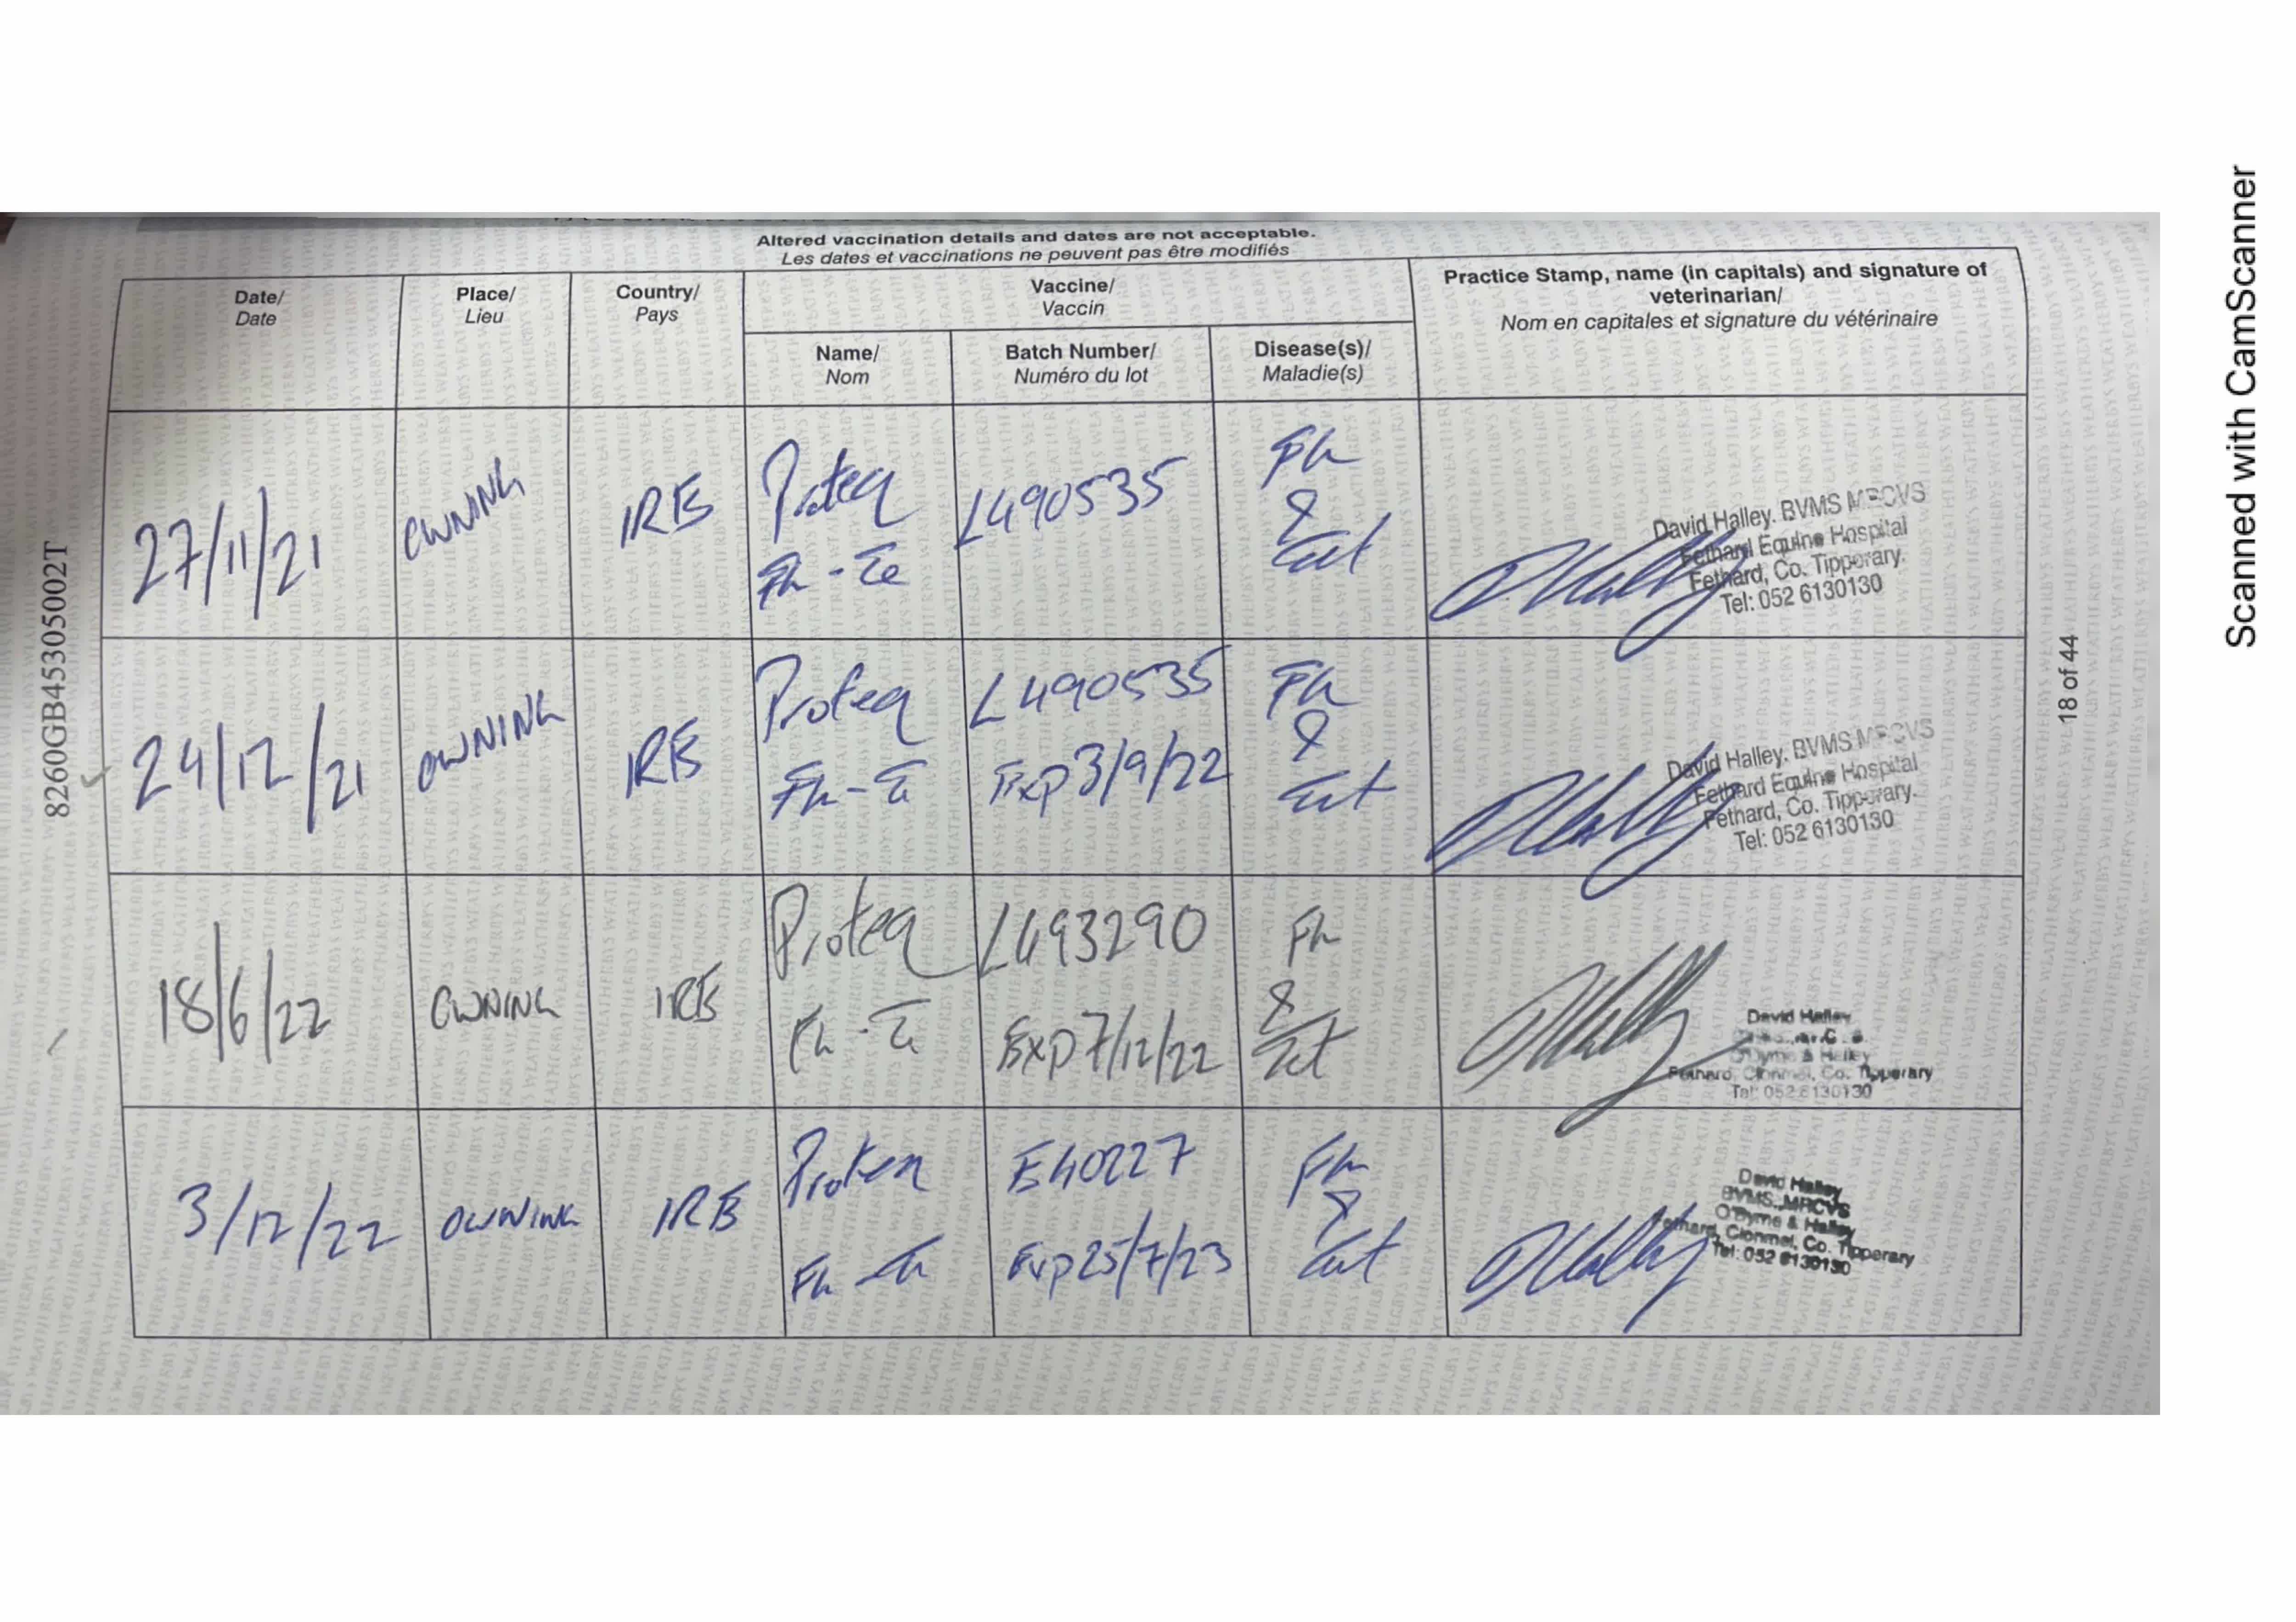 Altered vaccination details and dates are not acceptable.
Les dates et vaccinations ne peuvent pas être modifiés
Date/
Date
Place/
Lieu
Country/
Pays
Vaccine/
Vaccin
Name/
Nom
Batch Number/
Numéro du lot
Disease(s)/
Maladie(s)
Practice Stamp, name (in capitals) and signature of
veterinarian/
Nom en capitales et signature du vétérinaire
27/11/21
OWNING
IRE
Proteq
Flu - Te
L490535
Flu
&
Tet
David Halley. BVMS MRCVS
Fethard Equine Hospital
Fethard, Co. Tipperary.
Tel: 052 6130130
24/12/21
OWNING
IRE
Proteq
Flu - Te
L490535
Exp 3/9/22
Flu
&
Tet
David Halley. BVMS MRCVS
Fethard Equine Hospital
Fethard, Co. Tipperary.
Tel: 052 6130130
18/6/22
OWNING
IRE
Proteq
Flu - Te
L493290
Exp 7/12/22
Flu
&
Tet
David Halley
O'Byrne & Halley
Fethard, Clonmel, Co. Tipperary
Tel: 052 6130130
3/12/22
OWNING
IRE
Proteq
Flu - Te
E40227
Exp 25/7/23
Flu
&
Tet
David Halley
BVMS., MRCVS
O'Byrne & Halley
Fethard, Clonmel, Co. Tipperary
Tel: 052 6130130
8260GB45305002T
18 of 44
Scanned with CamScanner